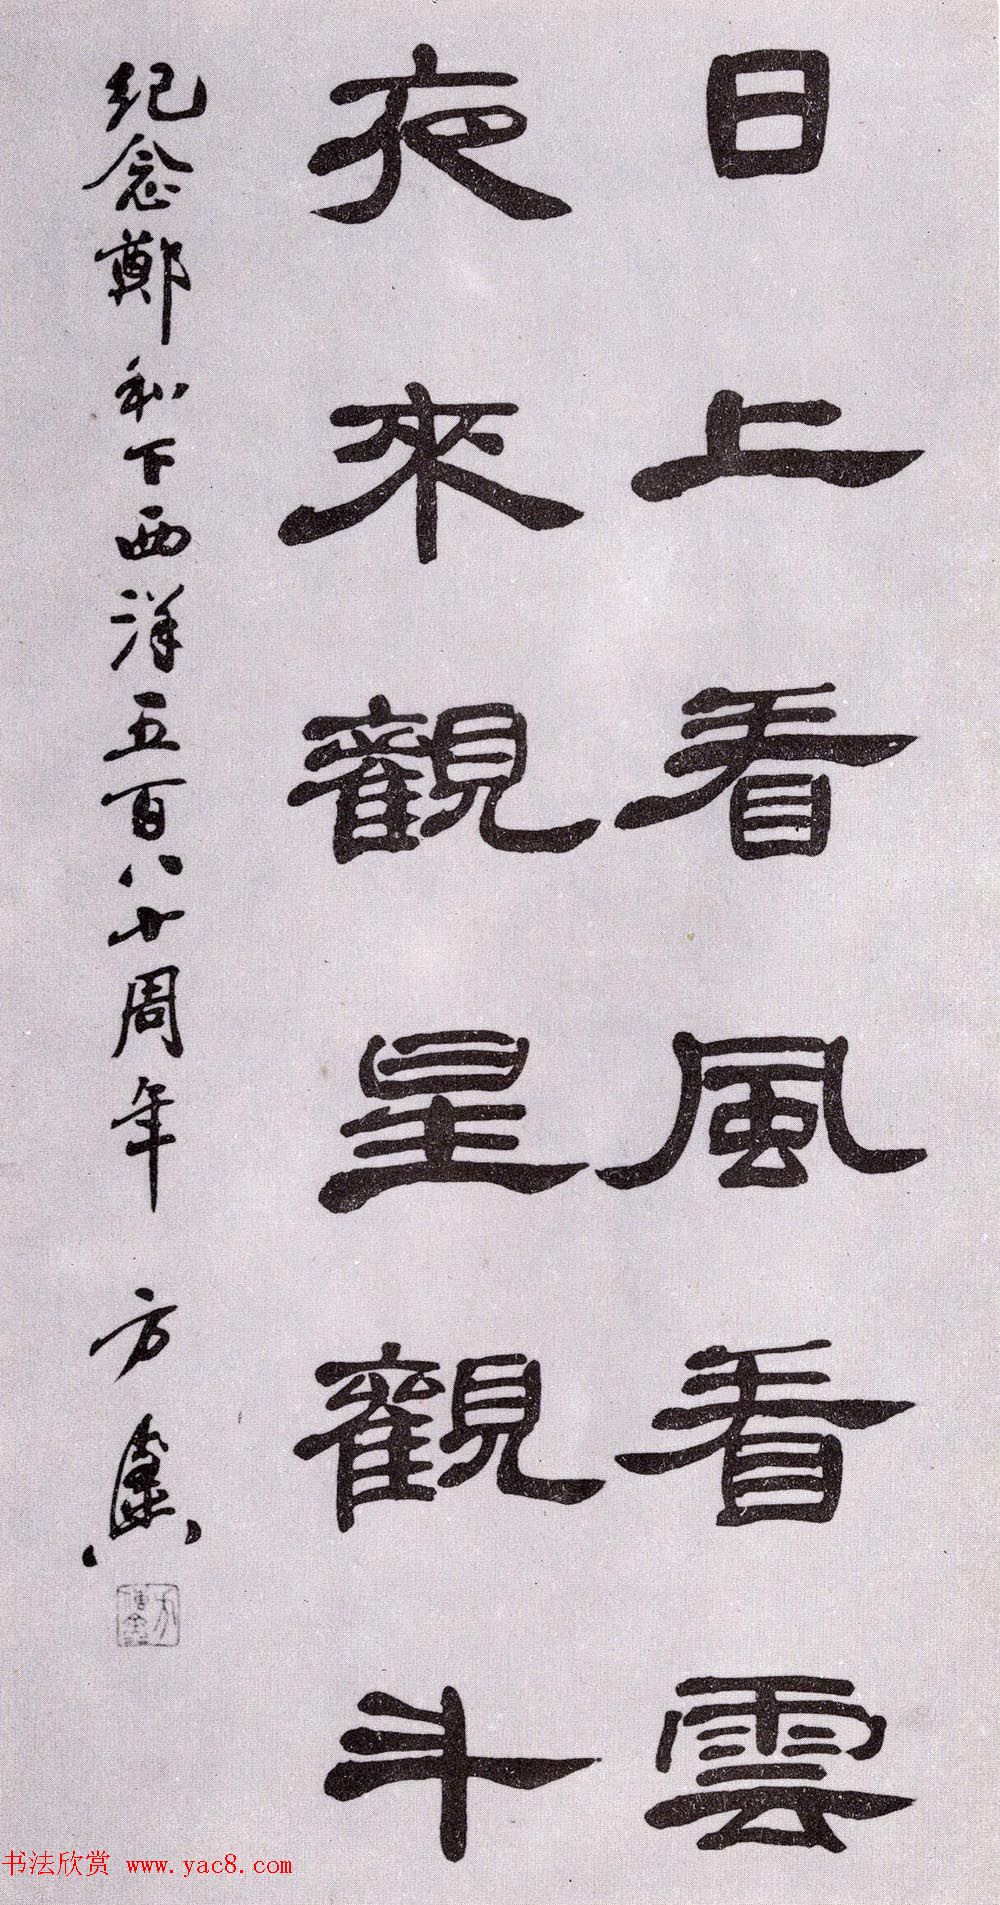 日上看風看雲
夜來觀星觀斗
紀念鄭和下西洋五百八十周年
方
书法欣赏 www.yac8.com